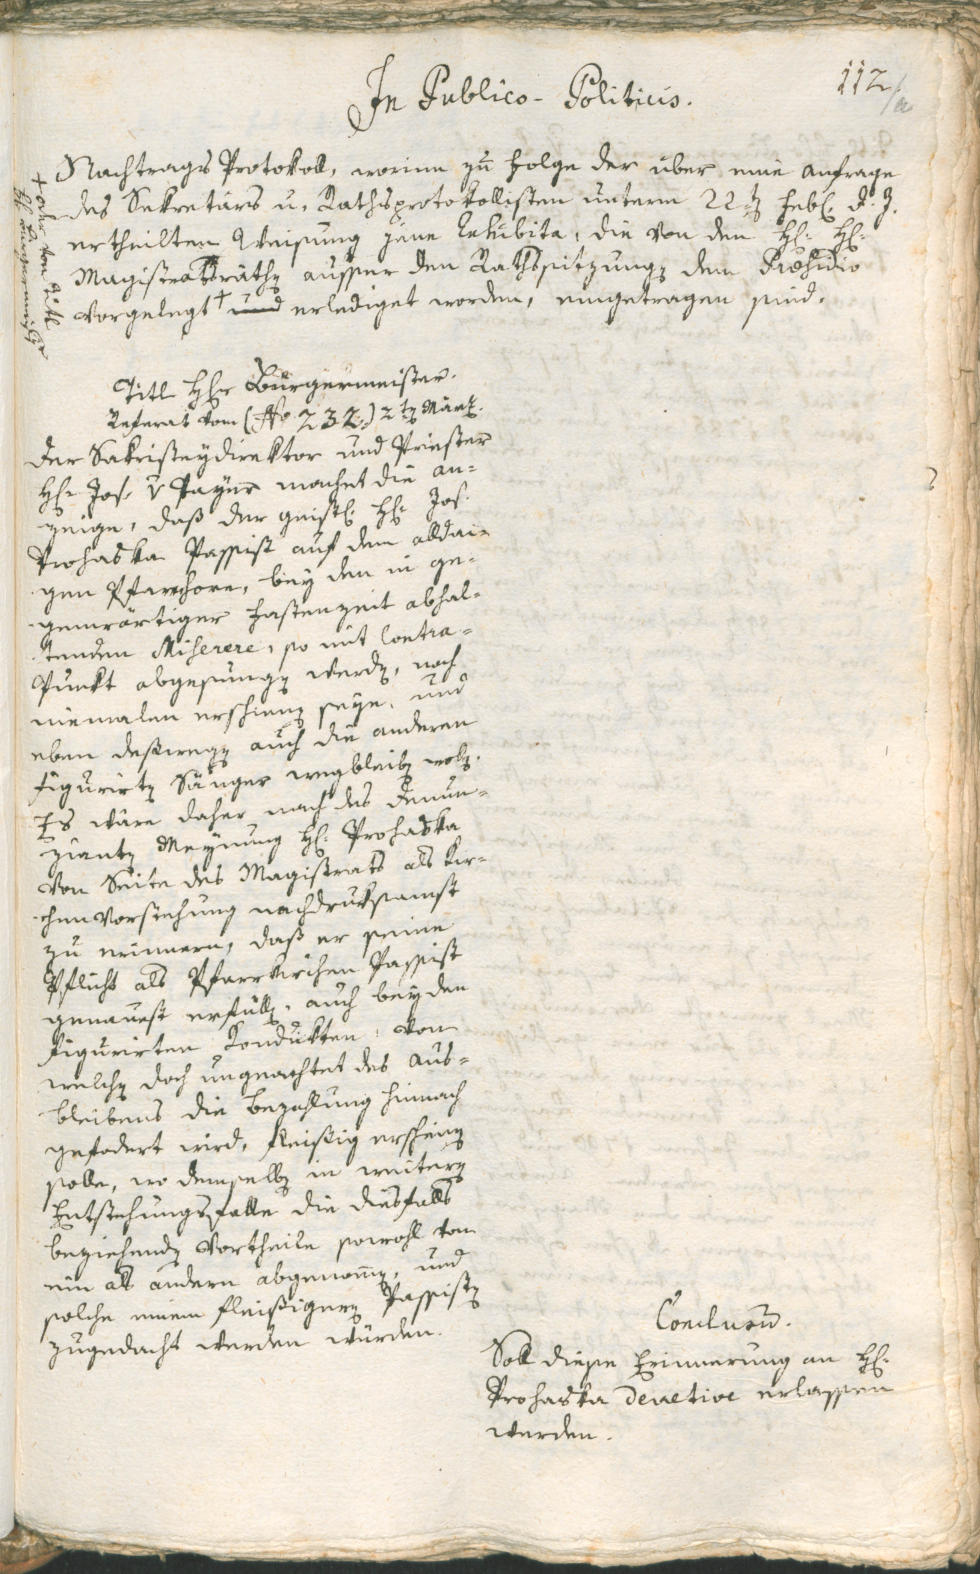 112/a
In Publico-Politicis.
Nachtrags Protokoll, worinn zu Folge der über eine Anfrage
des Sekretärs u. Rathsprotokollisten unterm 22tn Feb. d. J.
ertheilten Weisung jene Exhibita, die von den H. H.
Magistratsräthen ausser den Rathssitzungen dem Præsidio
vorgelegt + und erlediget worden, eingetragen sind.
+ oder von Titl
H. Bürgermeister
Titl Hr Bürgermeister.
Referat vom (No 232.) 2tn März.
Der Sakristeydirektor und Priester
Hr Jos. v Payer machet die An=
zeige, daß der geistl. Hr Jos.
Prohaska Bassist auf dem alldasi=
gen Pfarrchore, bey den in ge=
genwärtiger Fastenzeit abhal=
tenden Miserere, so mit Contra=
Punkt abgesungen werden, noch
niemalen erschienen seye, und
eben deßwegen auch die anderen
Figuristen Sänger wegbleiben wollen.
Es wäre daher nach des Denun=
zianten Meynung H. Prohaska
von Seite des Magistrats als Kir=
chenvorstehung nachdruksamst
zu erinnern, daß er seine
Pflicht als Pfarrkirchen Bassist
genauest erfüllen, auch bey den
figurirten Kondukten, von
welchen doch ungeachtet des Aus=
bleibens die Bezahlung hinnach
gefodert wird, fleißig erscheinen
solle, wo demselben in weiteren
Entstehungsfalle die diesfalls
beziehenden Vortheile sowohl vom
ein als andern abgenommen, und
solche einem fleißigeren Bassisten
zugedacht werden würden.
Conclusum.
Soll diese Erinnerung an H.
Prohaska decretive erlassen
werden.